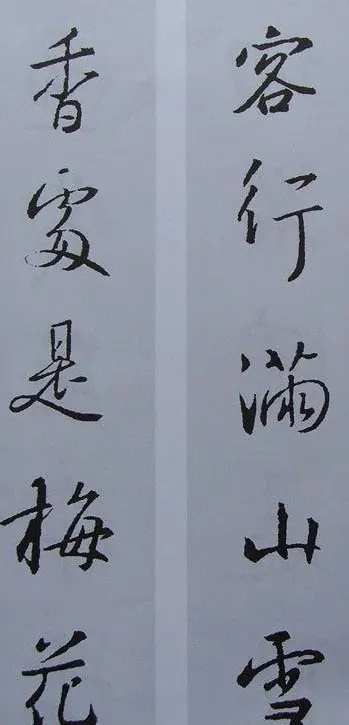 客行滿山雪
香處是梅花